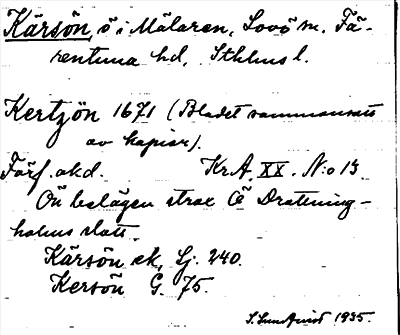 Kärsön, ö i Mälaren, Lovö sn. Fä-
rentuna hd, Sthlms l.
Kertzön 1671 (Bladet sammansatt
av kopior).
Förf. okd. Kr.A. XX. N:o 13
Ön belägen strax Ö Drottning-
holms slott.
Kärsön ek, Gj. 240.
Kersön G. 75.
S. Lundqvist 1935.